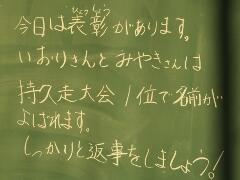 今日は表彰があります。
いおりさんとみやきさんは
持久走大会1位で名前が
よばれます。
しっかりと返事をしましょう!